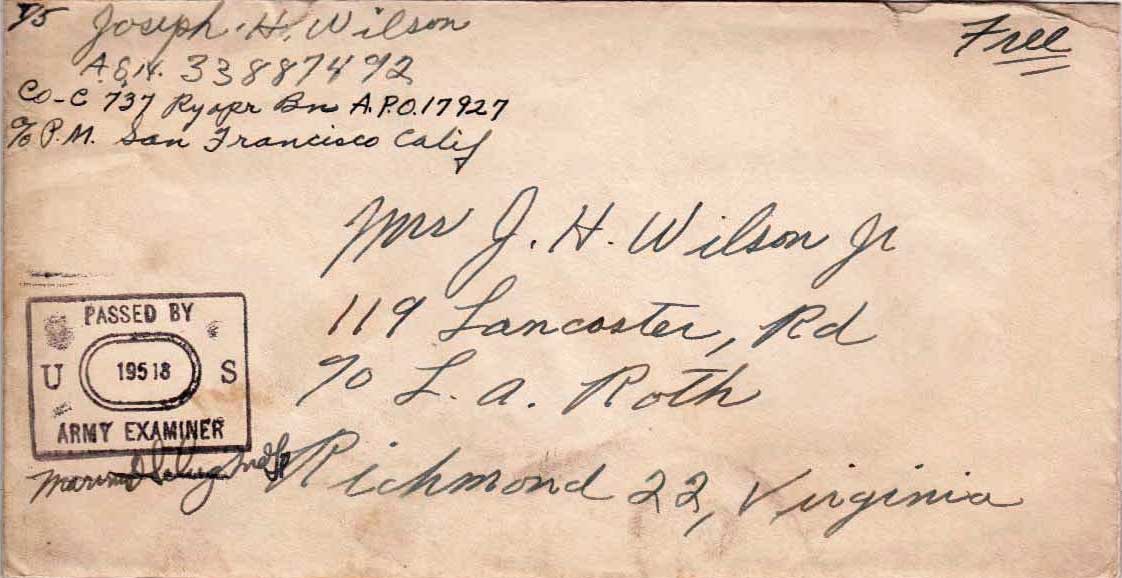 T/5 Joseph H. Wilson
A.S.N. 33887492
Co-C 737 Ry opr Bn A.P.O. 17927
c/o P.M. San Francisco Calif
Free
Mrs J. H. Wilson Jr
119 Lancaster, Rd
c/o L. A. Roth
Richmond 22, Virginia
PASSED BY
U 19518 S
ARMY EXAMINER